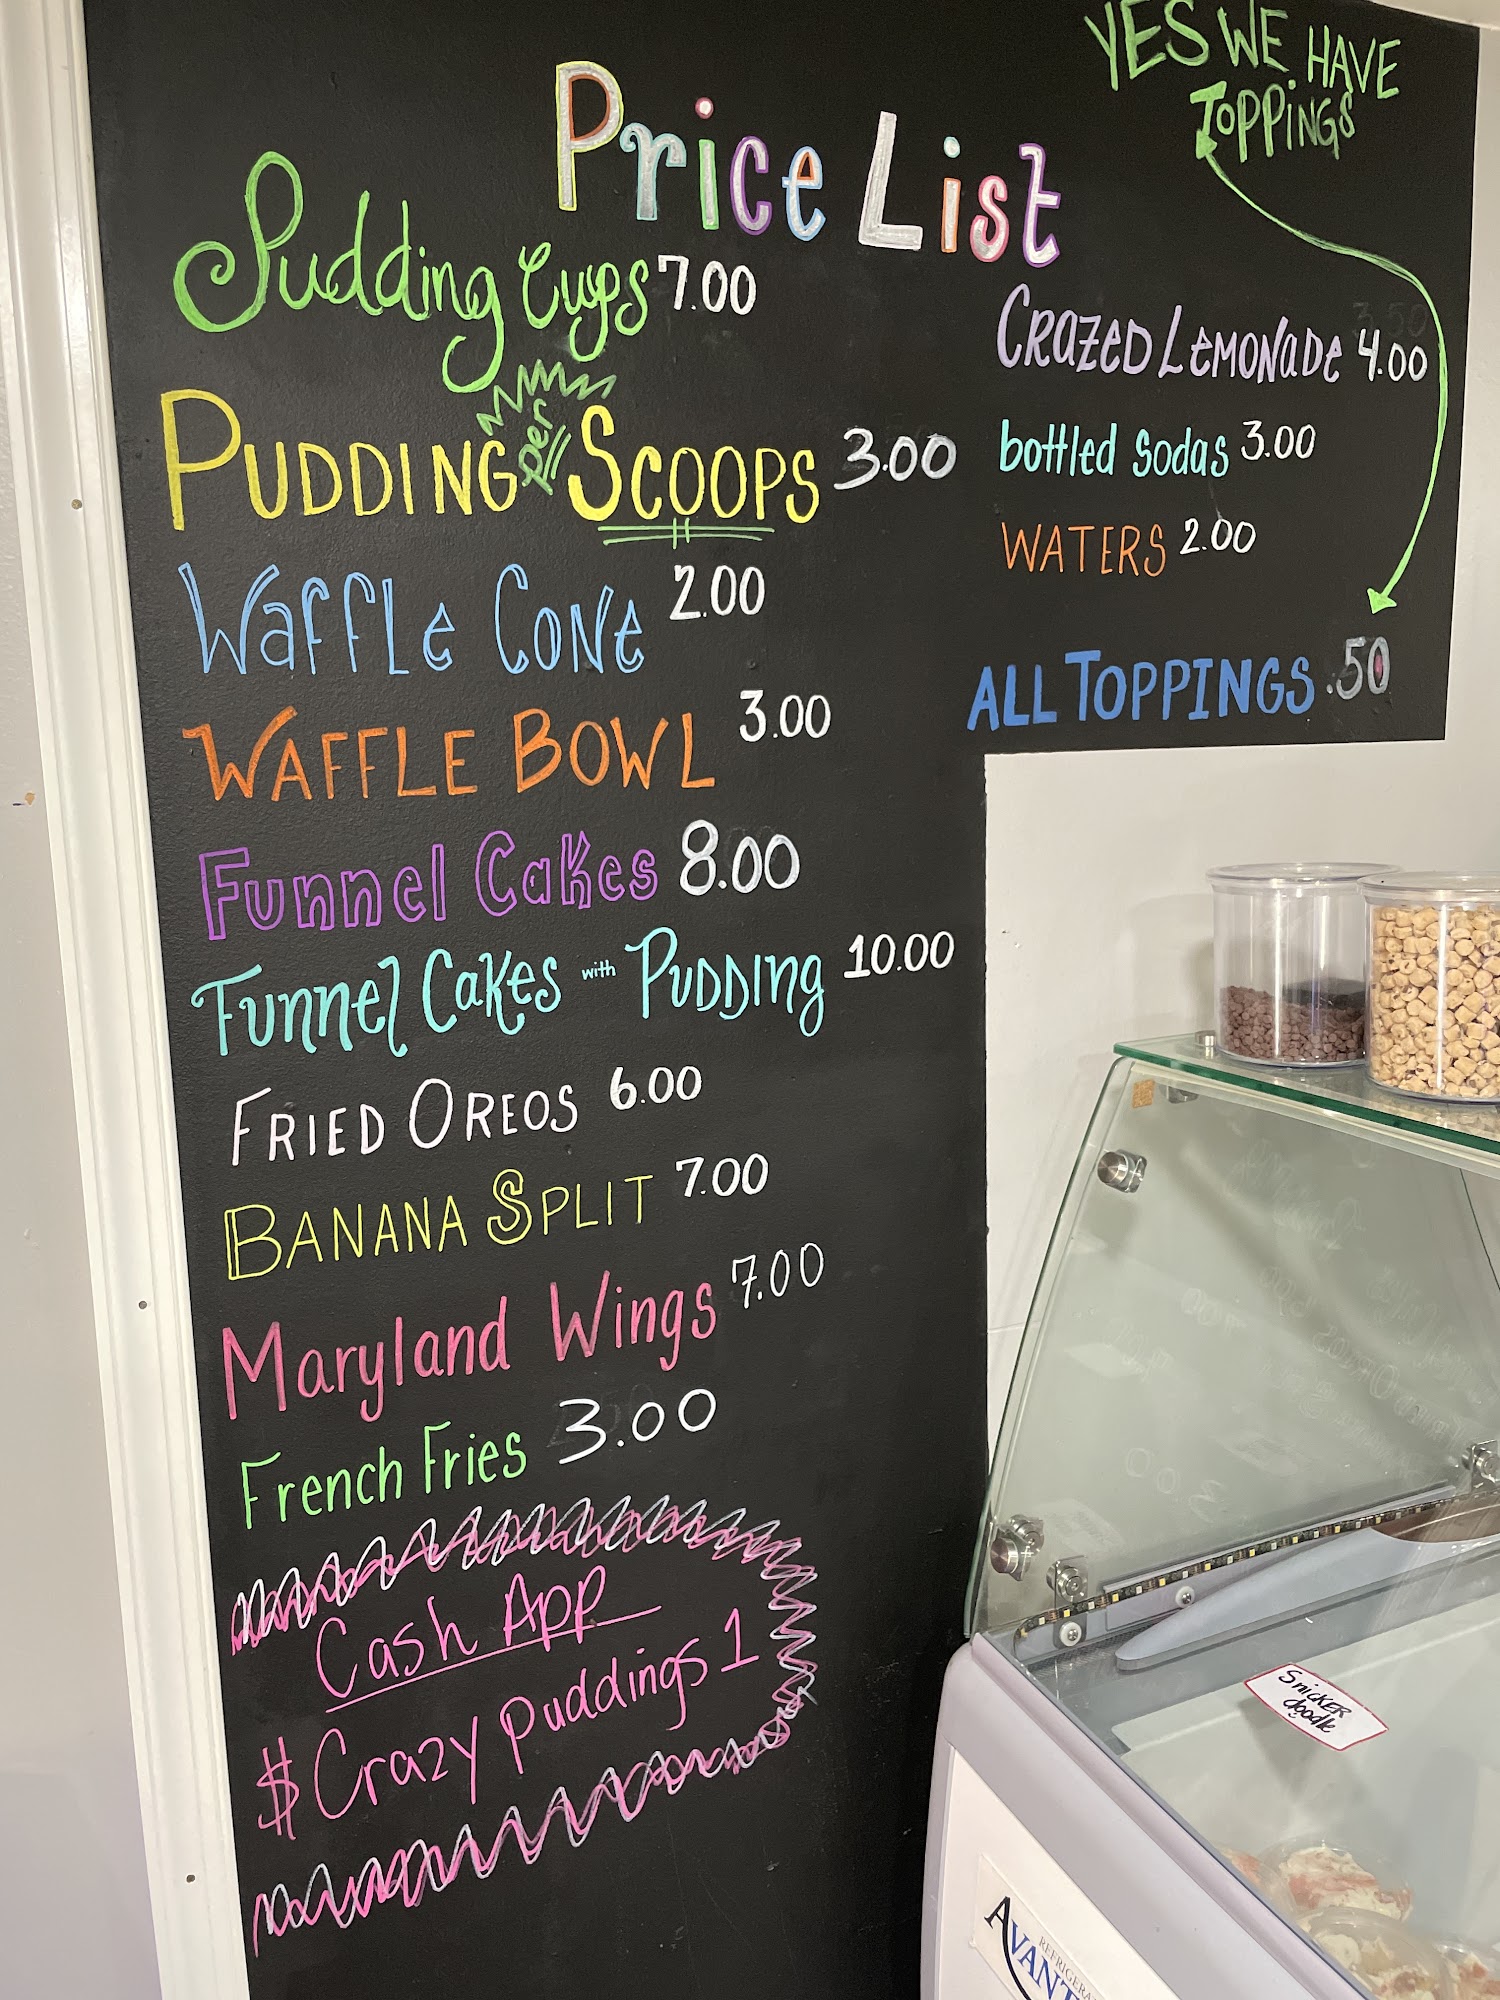 YES WE HAVE
TOPPiNGS
Price List
Pudding Cups 7.00
PUDDING per SCOOPS 3.00
Waffle Cone 2.00
WAFFLE BOWL 3.00
Funnel Cakes 8.00
Funnel Cakes with PUDDing 10.00
FRIED OREOS 6.00
BANANA SPLIT 7.00
Maryland Wings 7.00
French Fries 3.00
Cash App
$Crazypuddings1
CRAZED LeMONADe 4.00
bottled Sodas 3.00
WATERS 2.00
ALL TOPPINGS .50
SnicKER
doodle
AVANT
REFRIGERA